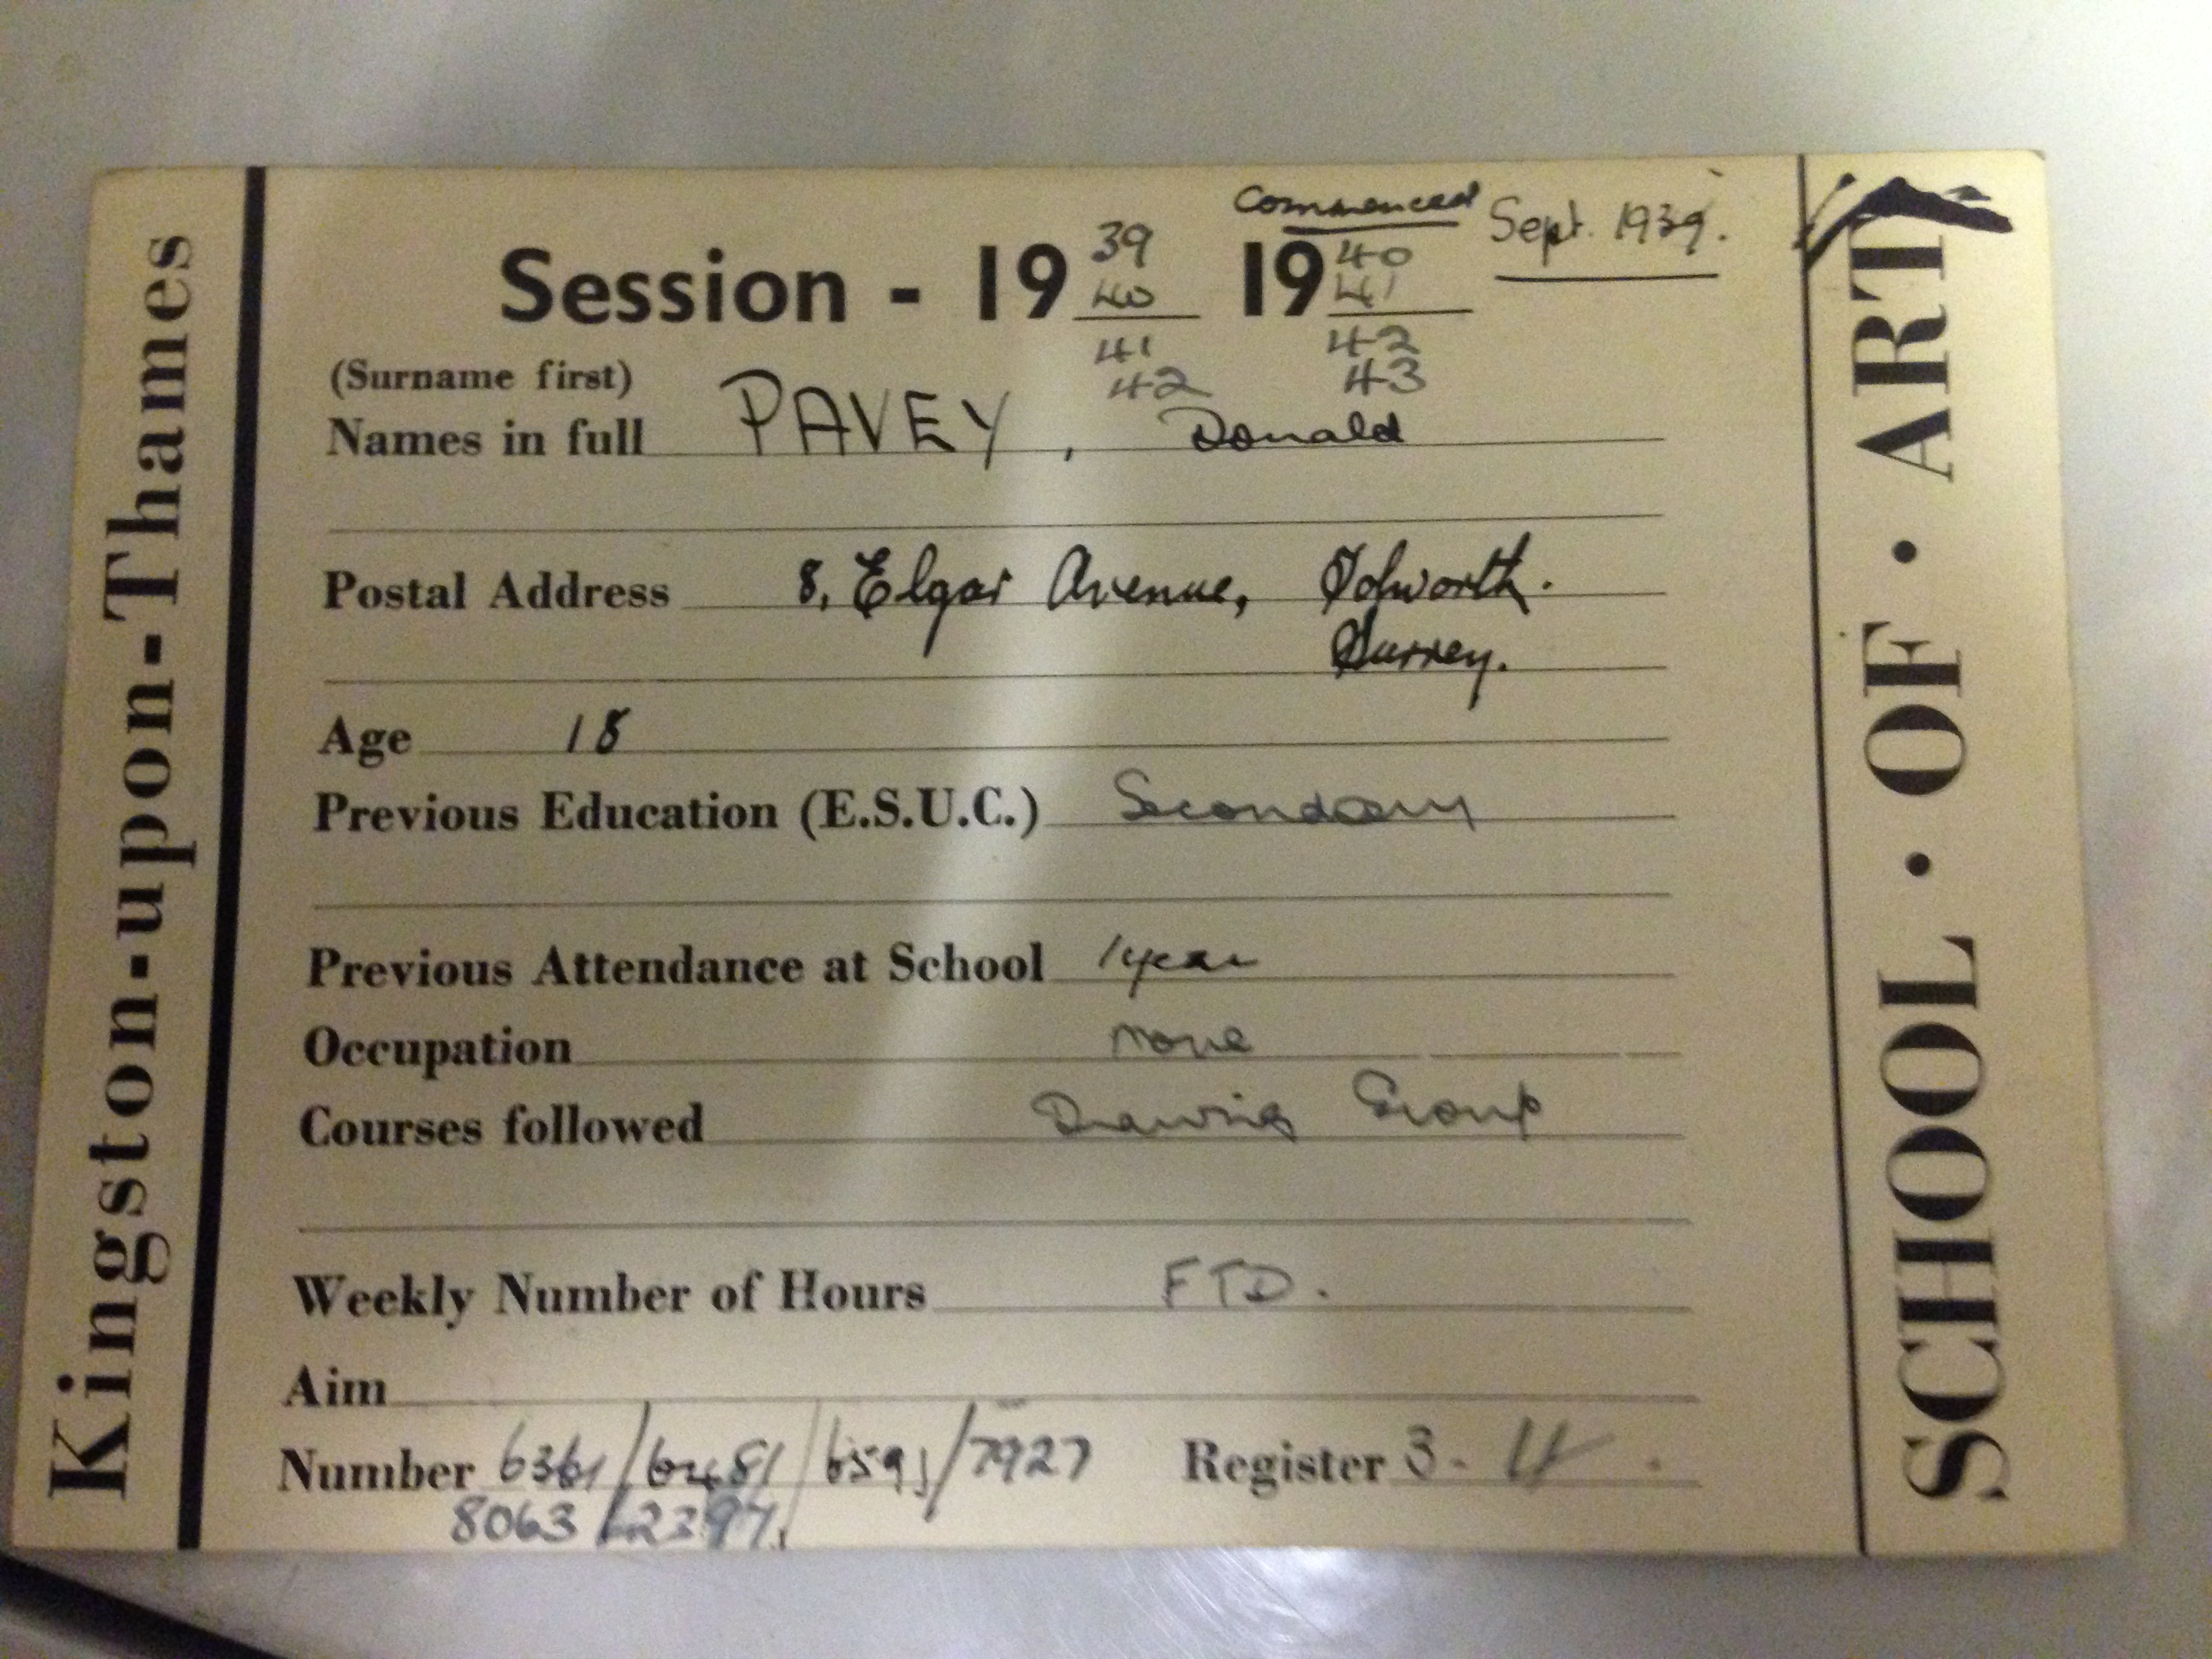 Kingston-upon-Thames
Commenced Sept. 1939.
Session - 19 39 19 40
40 41
41 42
42 43
(Surname first)
Names in full PAVEY, Donald
Postal Address 8, Elgar Avenue, Tolworth.
Surrey.
Age 18
Previous Education (E.S.U.C.) Secondary
Previous Attendance at School 1 year
Occupation None
Courses followed Drawing Group
Weekly Number of Hours FTD.
Aim
Number 6361/6481/6591/7927 Register 3 -
8063
SCHOOL · OF · ART